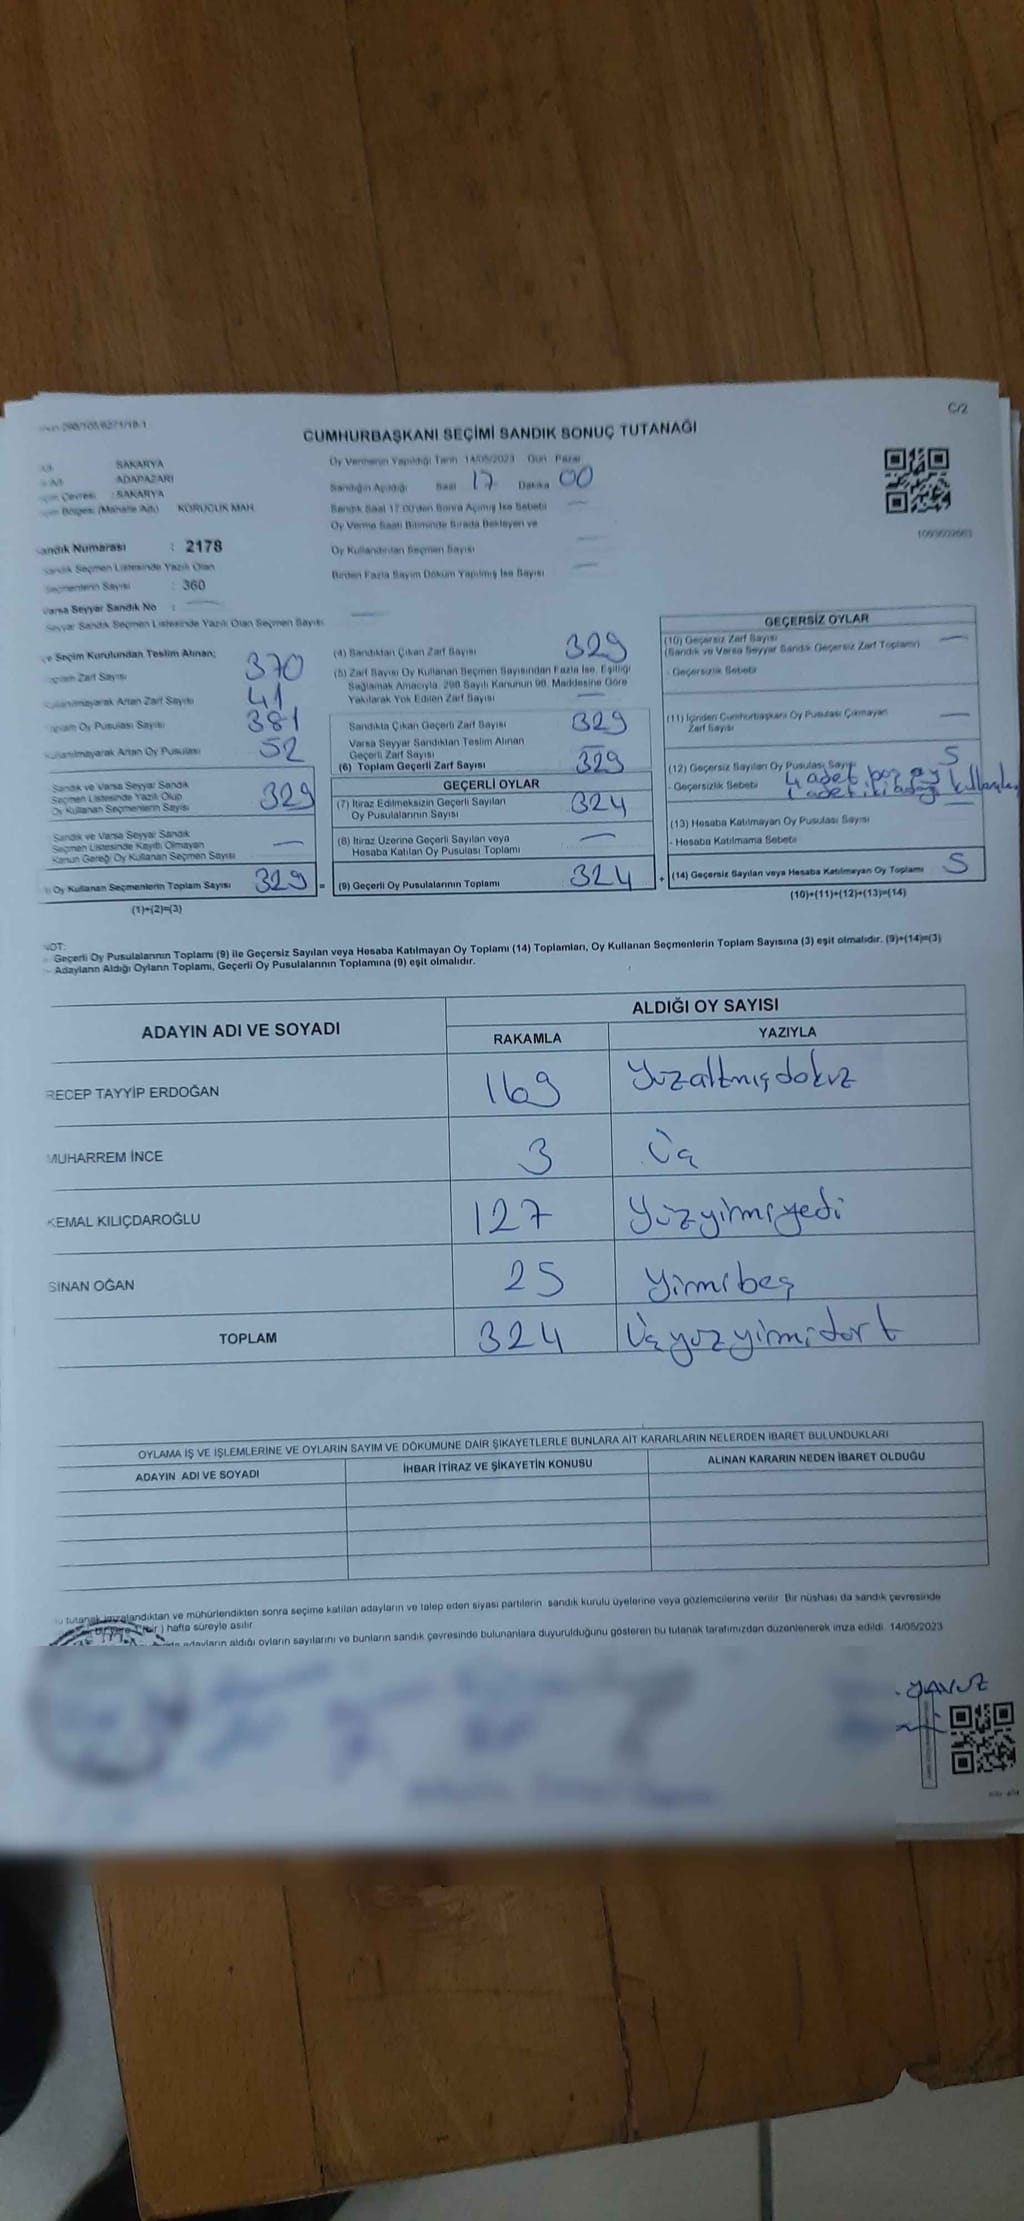 C/2
CUMHURBAŞKANI SEÇİMİ SANDIK SONUÇ TUTANAĞI
SAKARYA
ADAPAZARI
Çevresi : SAKARYA
Bölgesi (Mahalle Adı) KORUCUK MAH.
Sandık Numarası : 2178
Sandık Seçmen Listesinde Yazılı Olan
Seçmenlerin Sayısı : 360
Varsa Seyyar Sandık No :
Seyyar Sandık Seçmen Listesinde Yazılı Olan Seçmen Sayısı
Oy Vermenin Yapıldığı Tarih 14/05/2023 Gün Pazar
Sandığın Açıldığı Saat 17 Dakika 00
Sandık Saat 17.00'den Sonra Açılmış İse Sebebi
Oy Verme Saati Bitiminde Sırada Bekleyen ve
Oy Kullandırılan Seçmen Sayısı
Birden Fazla Sayım Döküm Yapılmış İse Sayısı
Seçim Kurulundan Teslim Alınan;
Toplam Zarf Sayısı 370
Kullanılmayarak Artan Zarf Sayısı 41
Toplam Oy Pusulası Sayısı 381
Kullanılmayarak Artan Oy Pusulası 52
Sandık ve Varsa Seyyar Sandık
Seçmen Listesinde Yazılı Olup
Oy Kullanan Seçmenlerin Sayısı 329
Sandık ve Varsa Seyyar Sandık
Seçmen Listesinde Kayıtlı Olmayan
Kanun Gereği Oy Kullanan Seçmen Sayısı —
Oy Kullanan Seçmenlerin Toplam Sayısı 329 =
(1)+(2)=(3)
(4) Sandıktan Çıkan Zarf Sayısı 329
(5) Zarf Sayısı Oy Kullanan Seçmen Sayısından Fazla İse, Eşitliği
Sağlamak Amacıyla, 298 Sayılı Kanunun 98. Maddesine Göre
Yakılarak Yok Edilen Zarf Sayısı —
Sandıkta Çıkan Geçerli Zarf Sayısı 329
Varsa Seyyar Sandıktan Teslim Alınan
Geçerli Zarf Sayısı —
(6) Toplam Geçerli Zarf Sayısı 329
GEÇERLİ OYLAR
(7) İtiraz Edilmeksizin Geçerli Sayılan
Oy Pusulalarının Sayısı 324
(8) İtiraz Üzerine Geçerli Sayılan veya
Hesaba Katılan Oy Pusulası Toplamı —
(9) Geçerli Oy Pusulalarının Toplamı 324 +
GEÇERSİZ OYLAR
(10) Geçersiz Zarf Sayısı —
(Sandık ve Varsa Seyyar Sandık Geçersiz Zarf Toplamı)
- Geçersizlik Sebebi
(11) İçinden Cumhurbaşkanı Oy Pusulası Çıkmayan
Zarf Sayısı —
(12) Geçersiz Sayılan Oy Pusulası Sayısı 5
- Geçersizlik Sebebi 4 adet boş oy
1 adet iki adaya
(13) Hesaba Katılmayan Oy Pusulası Sayısı
- Hesaba Katılmama Sebebi
(14) Geçersiz Sayılan veya Hesaba Katılmayan Oy Toplamı 5
(10)+(11)+(12)+(13)=(14)
NOT:
- Geçerli Oy Pusulalarının Toplamı (9) ile Geçersiz Sayılan veya Hesaba Katılmayan Oy Toplamı (14) Toplamları, Oy Kullanan Seçmenlerin Toplam Sayısına (3) eşit olmalıdır. (9)+(14)=(3)
- Adayların Aldığı Oyların Toplamı, Geçerli Oy Pusulalarının Toplamına (9) eşit olmalıdır.
ADAYIN ADI VE SOYADI ALDIĞI OY SAYISI
RAKAMLA YAZIYLA
RECEP TAYYİP ERDOĞAN 169 Yüzaltmışdokuz
MUHARREM İNCE 3 Üç
KEMAL KILIÇDAROĞLU 127 Yüzyirmiyedi
SİNAN OĞAN 25 Yirmibeş
TOPLAM 324 Üçyüzyirmidört
OYLAMA İŞ VE İŞLEMLERİNE VE OYLARIN SAYIM VE DÖKÜMÜNE DAİR ŞİKAYETLERLE BUNLARA AİT KARARLARIN NELERDEN İBARET BULUNDUKLARI
ADAYIN ADI VE SOYADI İHBAR İTİRAZ VE ŞİKAYETİN KONUSU ALINAN KARARIN NEDEN İBARET OLDUĞU
tutanak imzalandıktan ve mühürlendikten sonra seçime katılan adayların ve talep eden siyasi partilerin, sandık kurulu üyelerine veya gözlemcilerine verilir. Bir nüshası da sandık çevresinde
hafta süreyle asılır.
adayların aldığı oyların sayılarını ve bunların sandık çevresinde bulunanlara duyurulduğunu gösteren bu tutanak tarafımızdan düzenlenerek imza edildi. 14/05/2023
YAVUZ